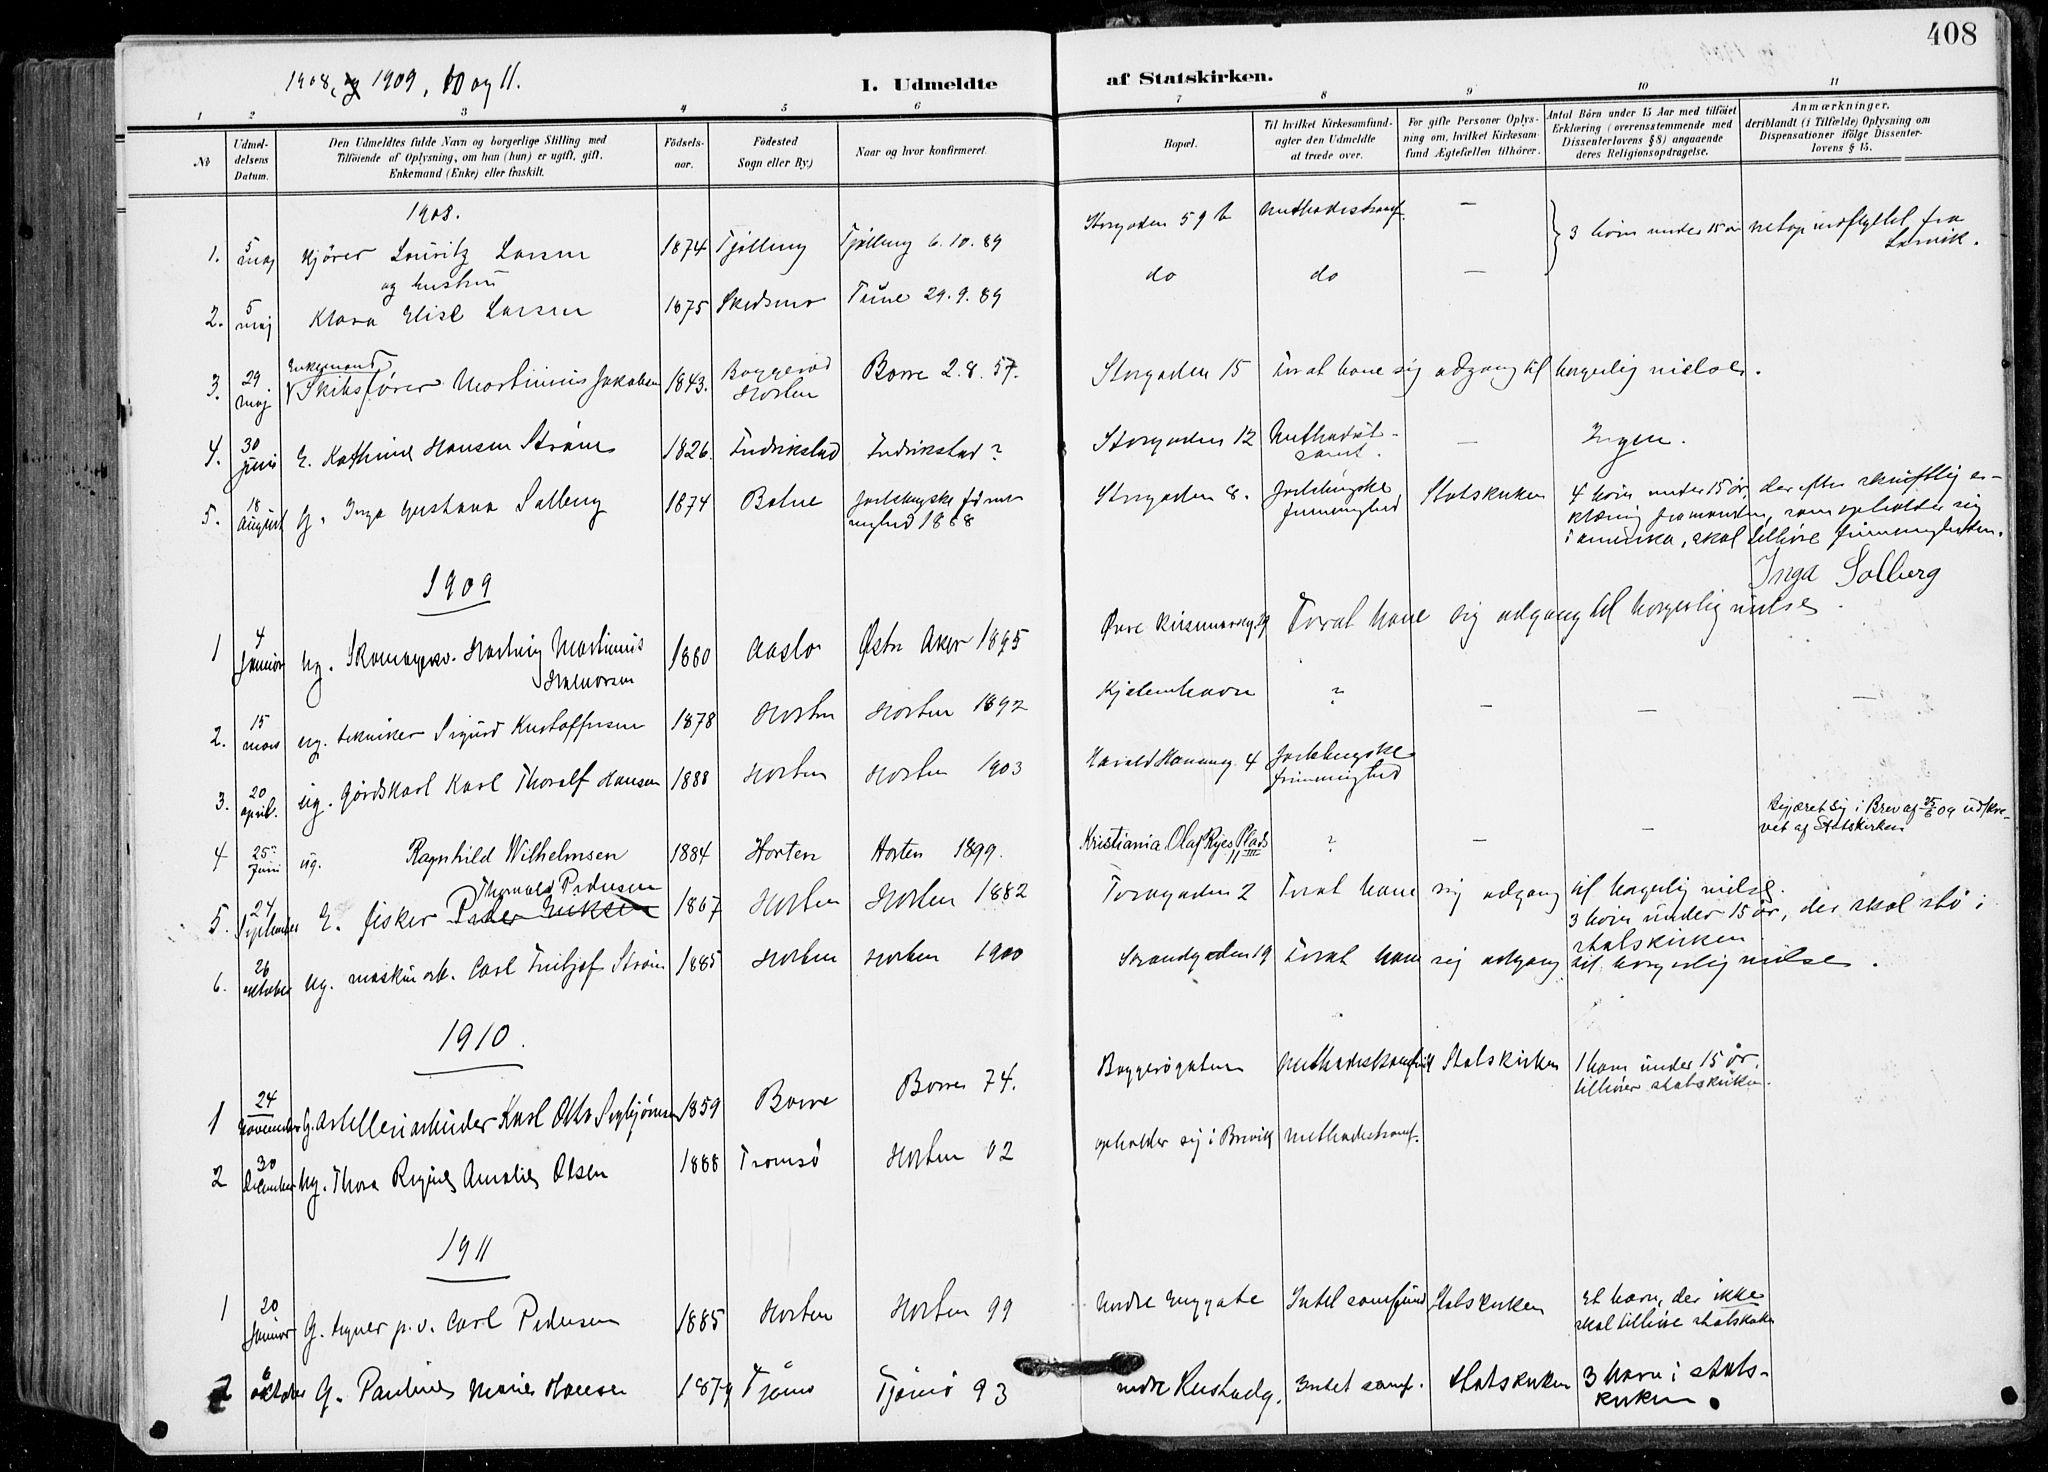 408
1908, og 1909, 10 og 11.
I. Udmeldte af Statskirken.
1 2 3 4 5 6 7 8 9 10 11
No
Udmel-
delsens
Datum.
Den Udmeldtes fulde Navn og borgerlige Stilling med
Tilföiende af Oplysning, om han (hun) er ugift, gift.
Enkemand (Enke) eller fraskilt.
Födsels-
aar.
Födested
Sogn eller By.)
Naar og hvor konfirmeret.
Bopæl.
Til hvilket Kirkesamfund-
agter den Udmeldte
at træde over.
For gifte Personer Oplys-
ning om, hvilket Kirkesam-
fund Ægtefællen tilhörer.
Antal Börn under 15 Aar med tilföiet
Erklæring (overensstemmende med
Dissenterlovens § 8) angaaende
deres Religionsopdragelse.
Anmærkninger.
deriblandt (i Tilfælde) Oplysning om
Dispensationer ifölge Dissenter-
lovens § 15.
1908.
1. 5 maj Kjører Lauritz Larsen 1874 Tjølling Tjølling 6.10.89 Storgaden 59 b Methodistsamf. — 3 børn under 15 år netop indflyttet fra
Larvik.
og hustru
2. 5 maj Klara Elise Larsen 1875 Skedsmo Tune 29.9.89 do do —
Enkemand
3. 29 maj Skibsfører Martinius Jakobsen 1843. Baggerød Horten Borre 2.8.57. Storgaden 15 For at have sig adgang til borgerlig vielse.
4. 30 juni E. Kathrine Hansen Strøm 1826. Fredrikstad Fredrikstad? Storgaden 12 Methodist-
samf. — Ingen.
5. 18 august G. Inga Gustava Solberg 1874 Botne 1888 Storgaden 8. Statskirken 4 børn under 15 år, der efter skriftlig er-
klæring fra manden, som opholder sig
i amerika, skal tilhøre frimenigheden.
Inga Solberg
1909
1 4 Januar ug. Skomagersv. Hartvig Martinius
Halvorsen 1880 Aaslo Østre Aker 1895 Øvre For at have sig adgang til borgerlig vielse.
2. 15 mars ug. tekniker Sigurd Kristoffersen 1878 Horten Horten 1892 Kjøbenhavn ? — — —
3. 20 april. ug. Gårdskarl Karl Thoralf Hansen 1888 Horten Horten 1903 4
frimenighed
4 25de Juni ug. Ragnhild Wilhelmsen 1884 Horten Horten 1899. Kristiania Olaf Ryes Plads
11 III ? — — Begjæret sig i Brev af 25/6 09 udskre-
vet af Statskirken
Thorvald Pedersen
5. 24 September E. fisker Peder Eriksen 1867 Horten Horten 1882 Torvgaden 2 For at have sig adgang til borgerlig vielse.
3 børn under 15 år, der skal stå i
statskirken
6. 26 oktober ug. maskinarb. Carl Fritjof Strøm 1885 Horten Horten 1900 Strandgaden 19 For at have sig adgang til borgerlig vielse.
1910.
1 24 November G. Artilleriarbeider Karl Otto Sigbjørnsen 1859 Borre Borre 74. Baggerøgaten Methodistsamfund Statskirken 1 barn under 15 år,
tilhører statskirken.
2 30 December ug. Thora Regine Amalie Olsen 1888 Tromsø Horten 02 opholder sig i Brevik Methodistsamf.
1911
1 20 Januar G. tegner p. v. Carl Pedersen 1885 Horten Horten 99 Nordre Enggate Intet samfund Statskirken Et barn, der ikke
skal tilhøre statskirken
2 6 oktober G. Pauline Marie Hansen 1879 Tjømø Tjømø 93 Intet samf. Statskirken 3 børn i stats-
kirken.